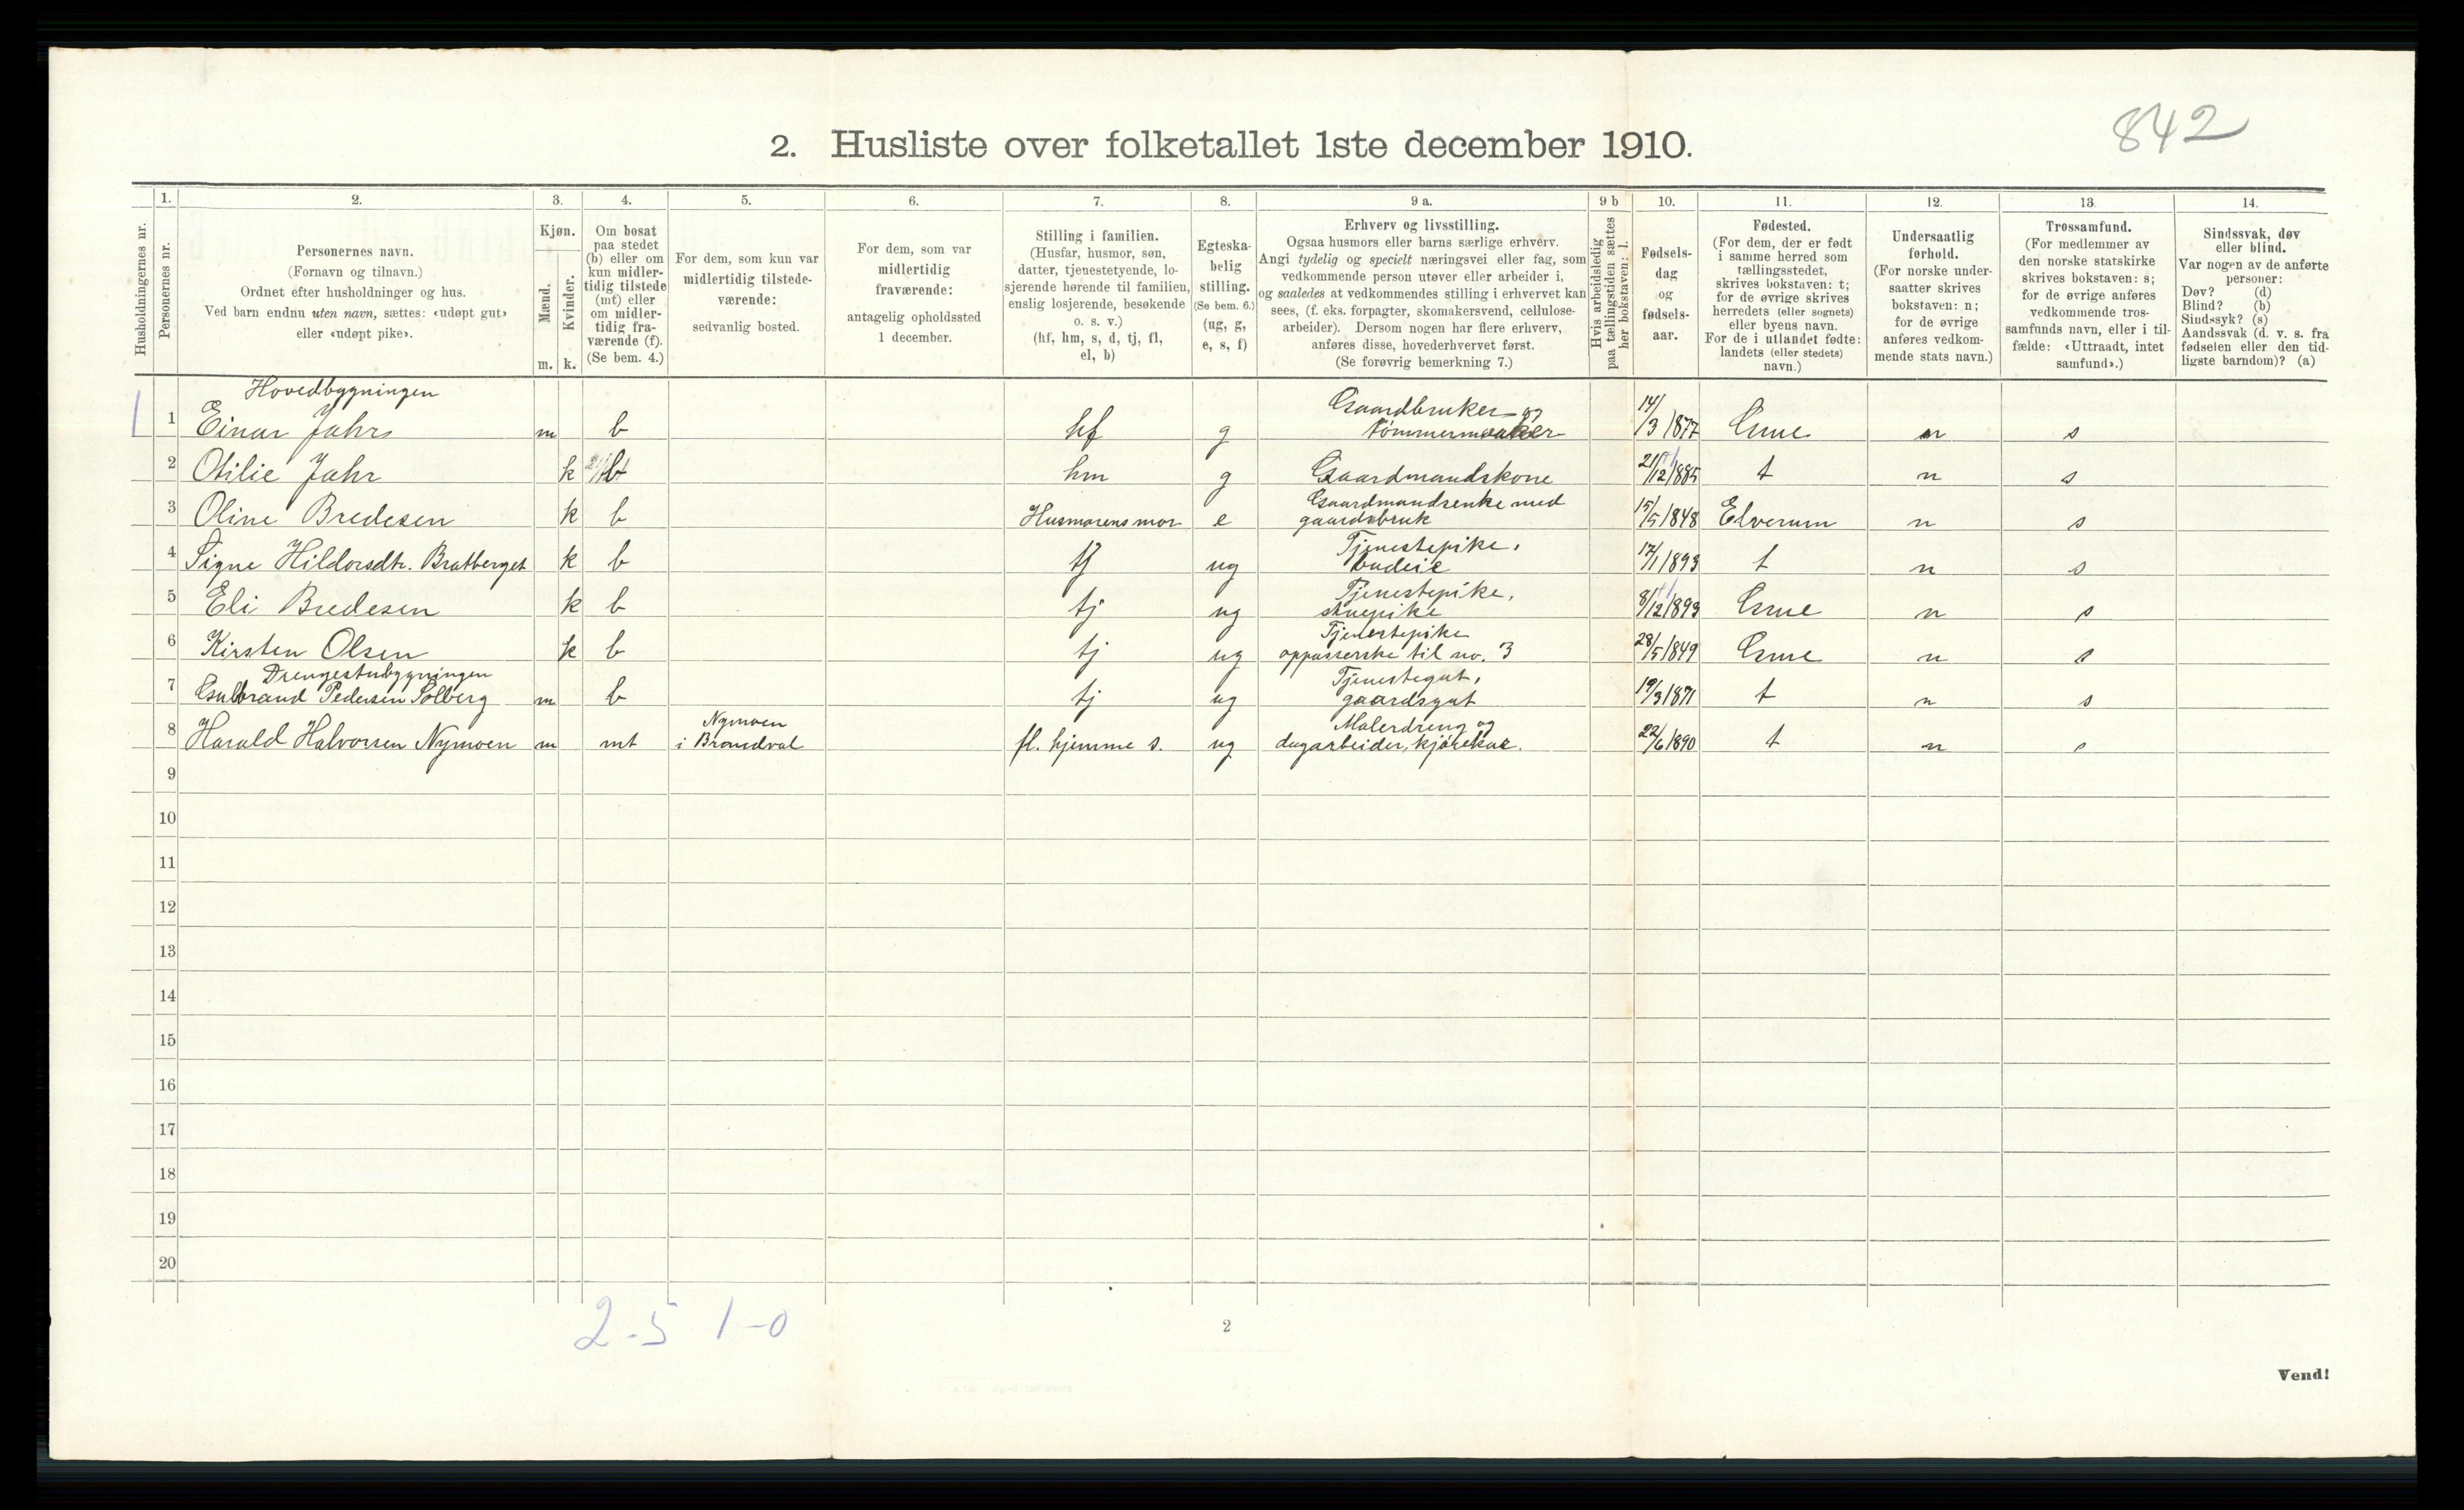 842
2. Husliste over folketallet 1ste december 1910.
Husholdningernes nr.
1.
Personernes nr.
2.
Personernes navn.
(Fornavn og tilnavn.)
Ordnet efter husholdninger og hus.
Ved barn endnu uten navn, sættes: «udøpt gut»
eller «udøpt pike».
3.
Kjøn.
Mænd.
Kvinder.
m. k.
4.
Om bosat
paa stedet
(b) eller om
kun midler-
tidig tilstede
(mt) eller
om midler-
tidig fra-
værende (f).
(Se bem. 4.)
5.
For dem, som kun var
midlertidig tilstede-
værende:
sedvanlig bosted.
6.
For dem, som var
midlertidig
fraværende:
antagelig opholdssted
1 december.
7.
Stilling i familien.
(Husfar, husmor, søn,
datter, tjenestetyende, lo-
sjerende hørende til familien,
enslig losjerende, besøkende
o. s. v.)
(hf, hm, s, d, tj, fl,
el, b)
8.
Egteska-
belig
stilling.
(Se bem. 6.)
(ug, g,
e, s, f)
9 a.
Erhverv og livsstilling.
Ogsaa husmors eller barns særlige erhverv.
Angi tydelig og specielt næringsvei eller fag, som
vedkommende person utøver eller arbeider i,
og saaledes at vedkommendes stilling i erhvervet kan
sees, (f. eks. forpagter, skomakersvend, cellulose-
arbeider). Dersom nogen har flere erhverv,
anføres disse, hovederhvervet først.
(Se forøvrig bemerkning 7.)
9 b
Hvis arbeidsledig
paa tællingstiden sættes
her bokstaven: l.
10.
Fødsels-
dag
og
fødsels-
aar.
11.
Fødested.
(For dem, der er født
i samme herred som
tællingsstedet,
skrives bokstaven: t;
for de øvrige skrives
herredets (eller sognets)
eller byens navn.
For de i utlandet fødte:
landets (eller stedets)
navn.)
12.
Undersaatlig
forhold.
(For norske under-
saatter skrives
bokstaven: n;
for de øvrige
anføres vedkom-
mende stats navn.)
13.
Trossamfund.
(For medlemmer av
den norske statskirke
skrives bokstaven: s;
for de øvrige anføres
vedkommende tros-
samfunds navn, eller i til-
fælde: «Uttraadt, intet
samfund».)
14.
Sindssvak, døv
eller blind.
Var nogen av de anførte
personer:
Døv? (d)
Blind? (b)
Sindssyk? (s)
Aandssvak (d. v. s. fra
fødselen eller den tid-
ligste barndom)? (a)
Hovedbygningen
Gaardbruker og
1 Einar Jahr m b hf g tømmermaaler 14/3 1877 Grue n s
2 Otilie Jahr k b hm g Gaardmandskone 21/12 1885 t n s
Gaardmandsenke med
3 Oline Bredesen k b Husmorens mor e gaardsbruk 15/5 1848 Elverum n s
Tjenestepike,
4 Signe Hildorsdtr. Bratberget k b tj ug budeie 17/1 1893 t n s
Tjenestepike,
5 Eli Bredesen k b tj ug stuepike 8/12 1893 Grue n s
Tjenestepike
6 Kirsten Olsen k b tj ug oppasserske til no. 3 28/5 1849 Grue n s
Drengestubygningen
Tjenestegut,
7 Gulbrand Pedersen Solberg m b tj ug gaardsgut 19/3 1871 t n s
Nymoen
Malerdreng og
8 Harald Halvorsen Nymoen m mt i Brandval fl. hjemme s. ug dagarbeider, kjørekar. 22/6 1890 t n s
9
10
11
12
13
14
15
16
17
18
19
20
2-5 1-0
2
Vend!